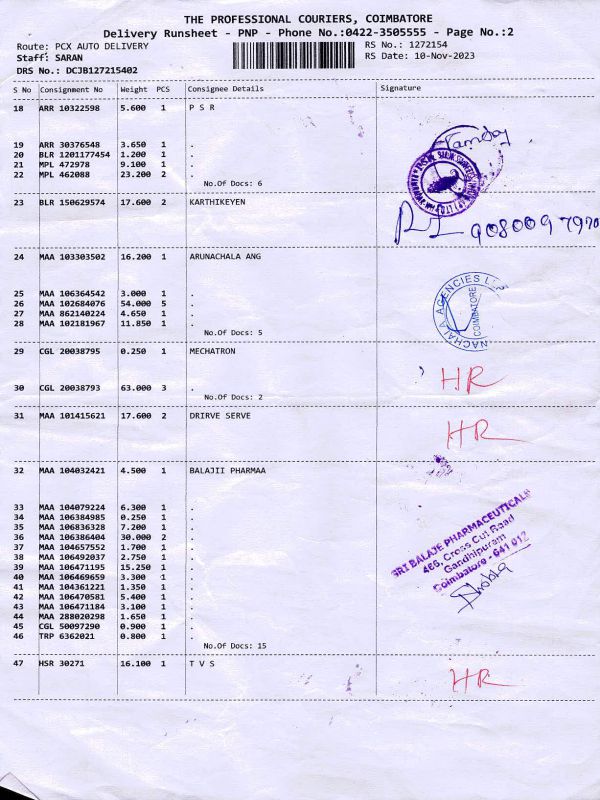 THE PROFESSIONAL COURIERS, COIMBATORE
Delivery Runsheet - PNP - Phone No.:0422-3505555 - Page No.:2
Route: PCX AUTO DELIVERY RS No.: 1272154
Staff: SARAN RS Date: 10-Nov-2023
DRS No.: DCJB127215402
S No Consignment No Weight PCS Consignee Details Signature
18 ARR 10322598 5.600 1 P S R
19 ARR 30376548 3.650 1 .
20 BLR 1201177454 1.200 1 .
21 MPL 472978 9.100 1 .
22 MPL 462088 23.200 2 .
No.Of Docs: 6
23 BLR 150629574 17.600 2 KARTHIKEYEN
9080097970
24 MAA 103303502 16.200 1 ARUNACHALA ANG
25 MAA 106364542 3.000 1 .
26 MAA 102684076 54.000 5 .
27 MAA 862140224 4.650 1 .
28 MAA 102181967 11.850 1 .
No.Of Docs: 5
NACHALA AGENCIES
COIMBATORE
29 CGL 20038795 0.250 1 MECHATRON
30 CGL 20038793 63.000 3 .
No.Of Docs: 2
HR
31 MAA 101415621 17.600 2 DRIRVE SERVE
HR
32 MAA 104032421 4.500 1 BALAJII PHARMAA
33 MAA 104079224 6.300 1 .
34 MAA 106384985 0.250 1 .
35 MAA 106836328 7.200 1 .
36 MAA 106386404 30.000 2 .
37 MAA 104657552 1.700 1 .
38 MAA 106492037 2.750 1 .
39 MAA 106471195 15.250 1 .
40 MAA 106469659 3.300 1 .
41 MAA 104361221 1.350 1 .
42 MAA 106470581 5.400 1 .
43 MAA 106471184 3.100 1 .
44 MAA 288020298 1.650 1 .
45 CGL 50097290 0.900 1 .
46 TRP 6362021 0.800 1 .
No.Of Docs: 15
SRI BALAJE PHARMACEUTICALS
466, Cross Cut Road
Gandhipuram
Coimbatore - 641 012
47 HSR 30271 16.100 1 T V S
HR